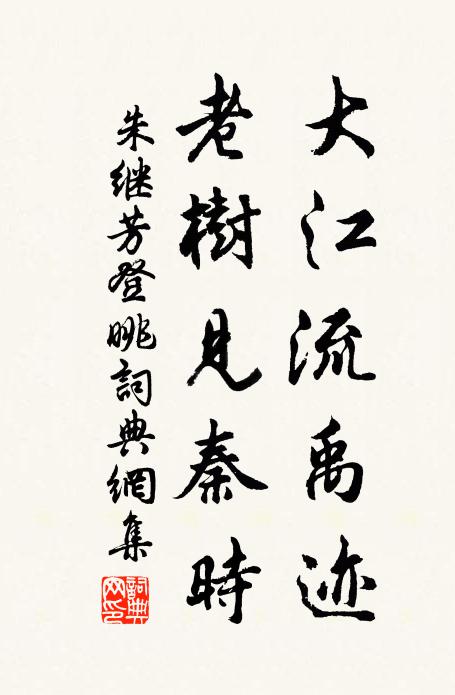 大江流禹迹
老樹見秦時
朱继芳登眺詞典網集
詞典网印